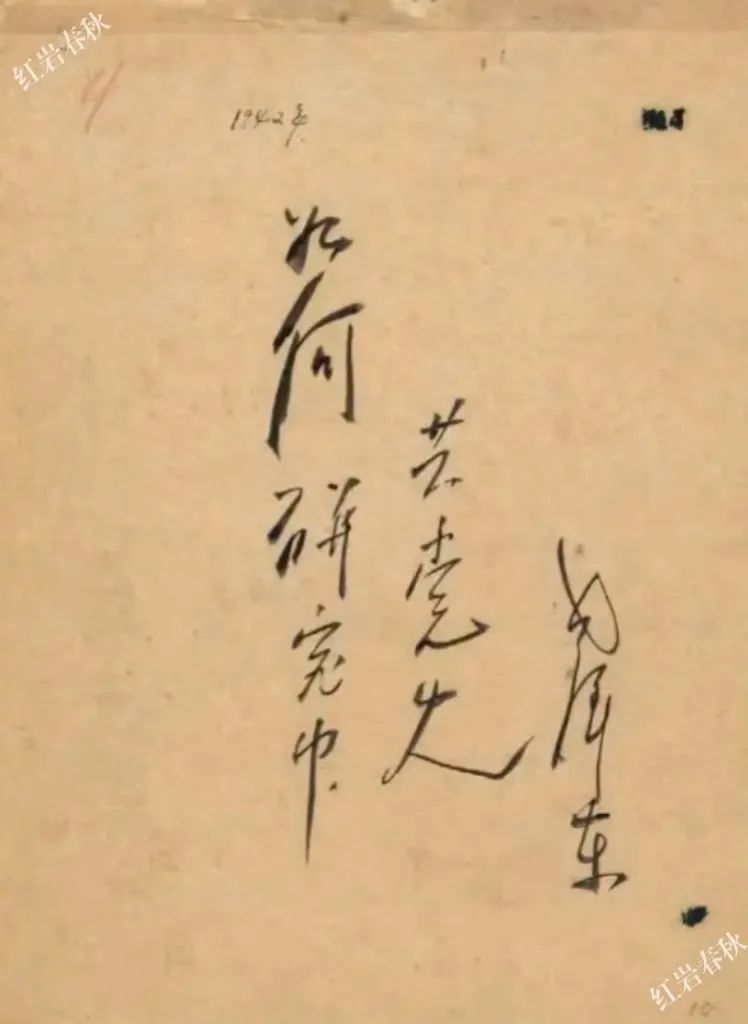 红岩春秋
1942年
如何研究中
共党史
毛泽东
红岩春秋
10